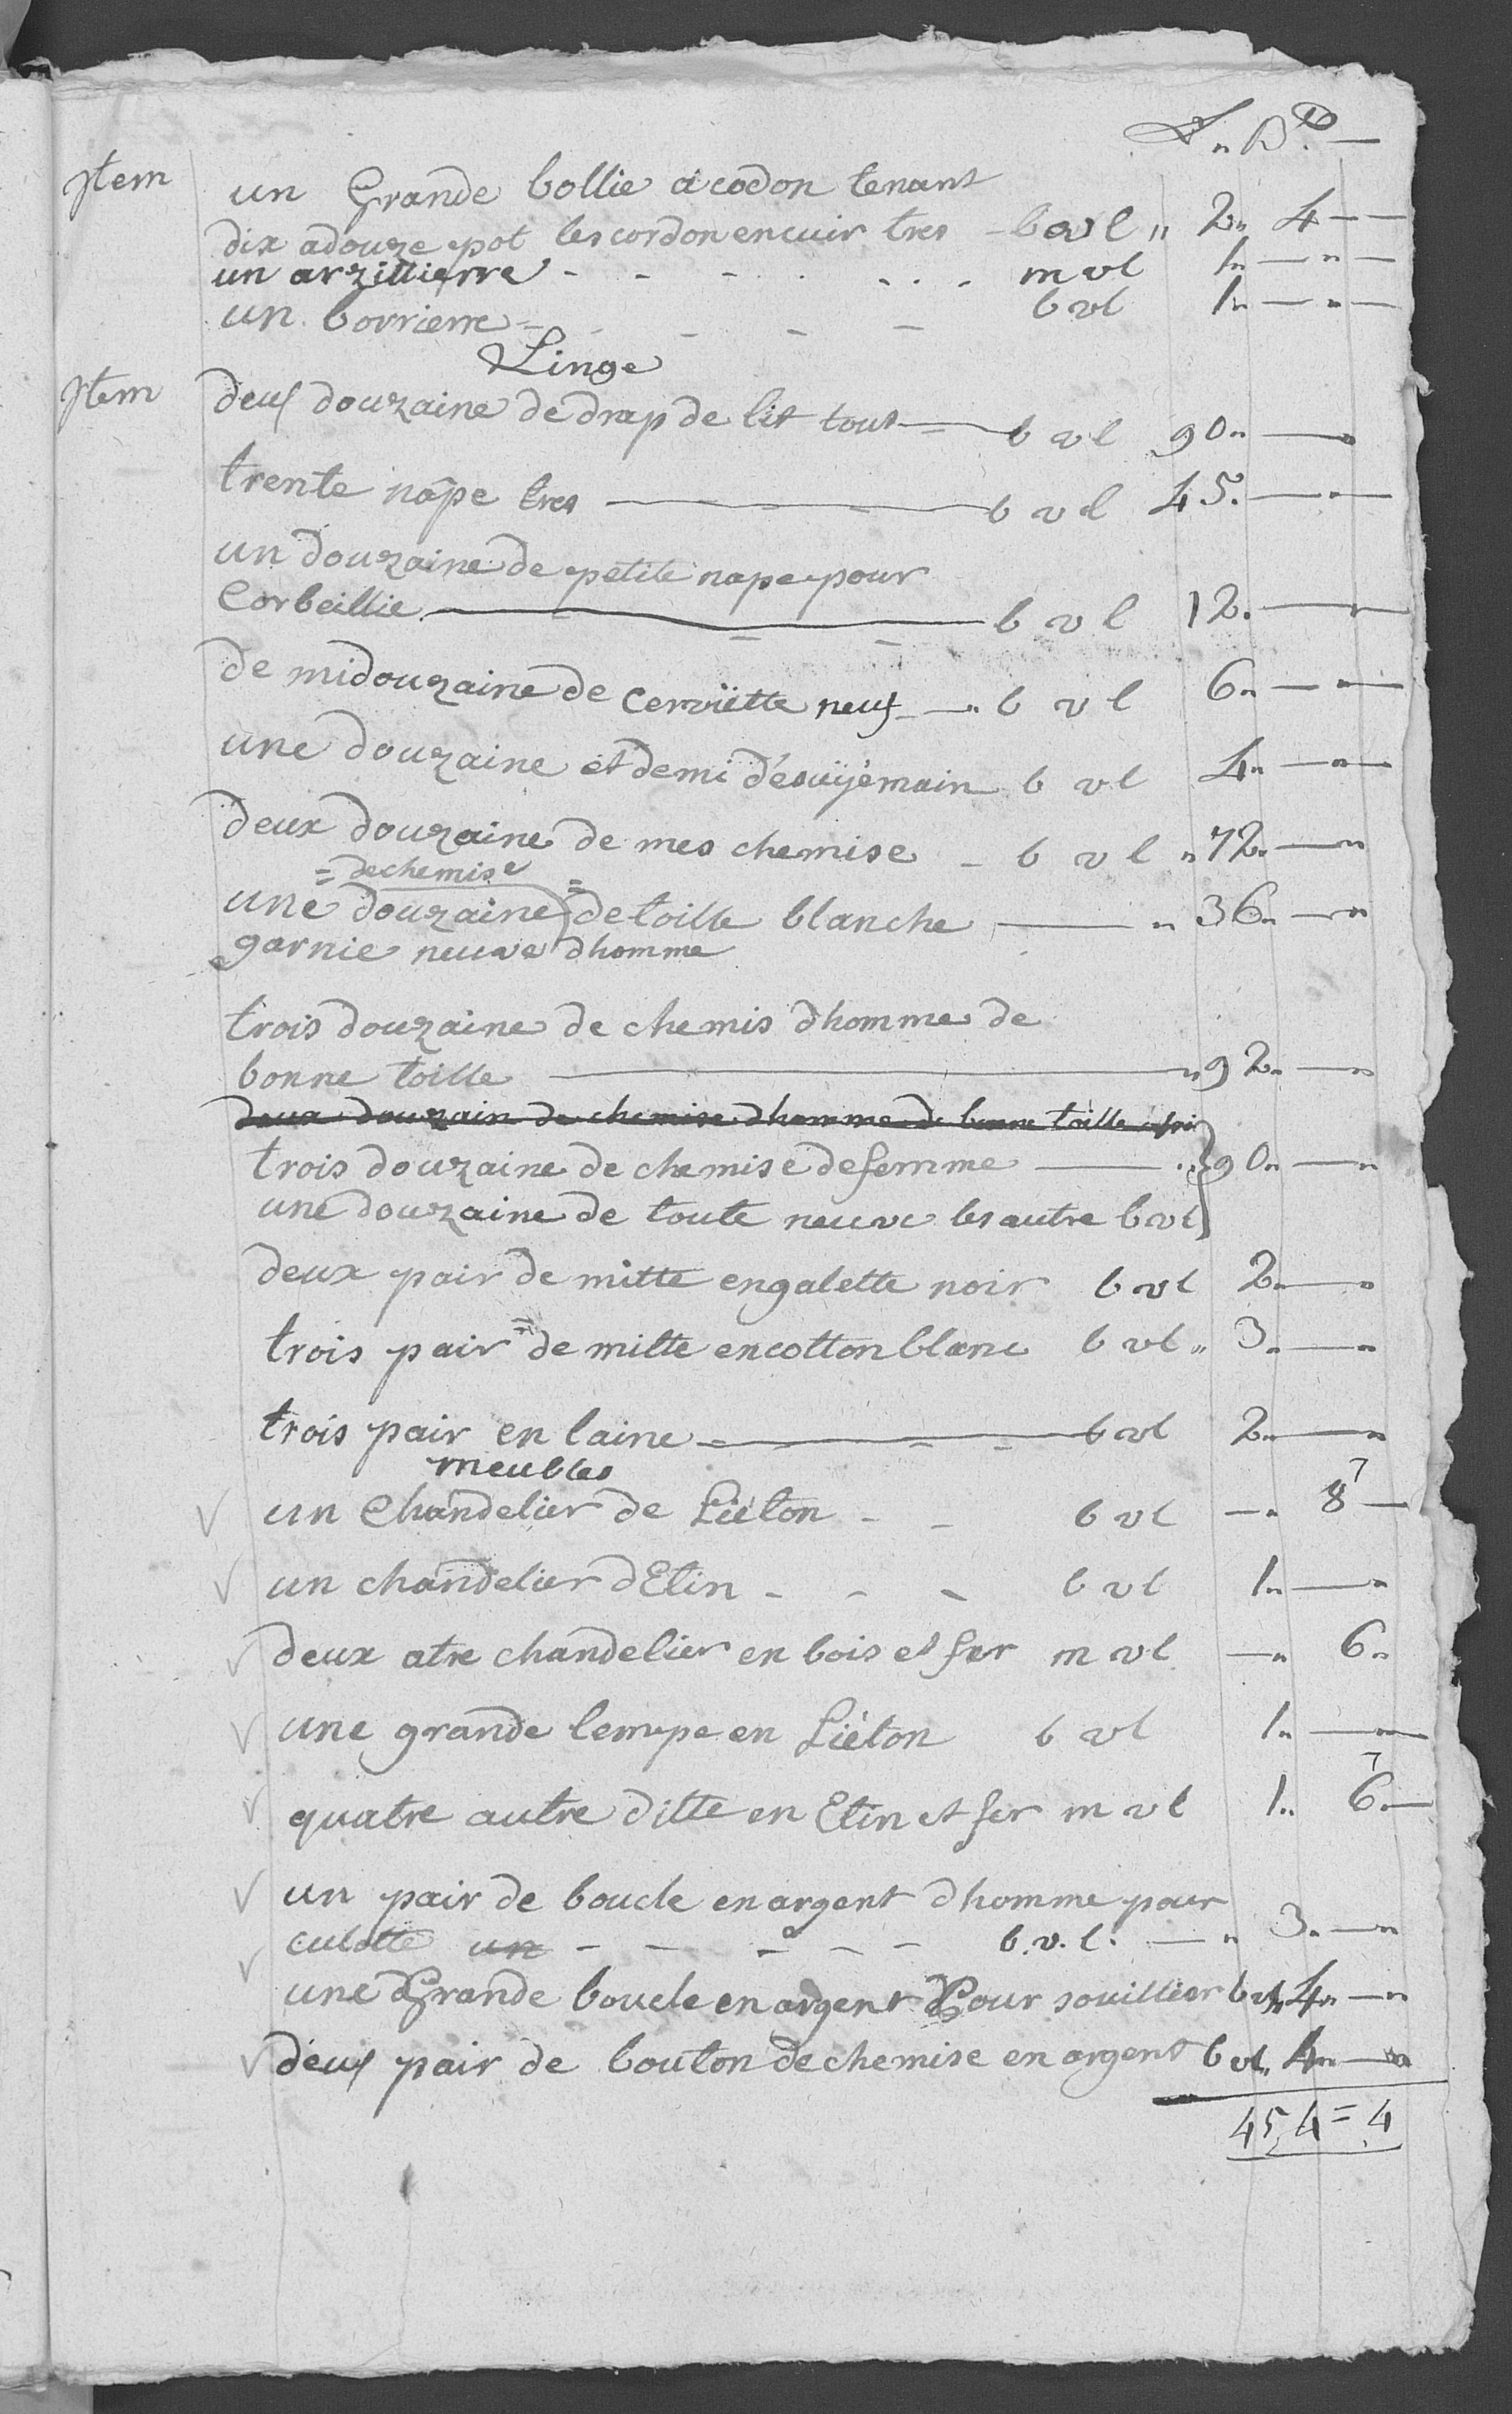 L „ B.
Item un Grande bollie a codon tenant
dix a douze pot les cordon en cuir tres - b v l „ 2„ 4 —
un arzillierre - - - . . . . m vl 1„ — „ —
un borrierre - - - - b vl 1„ — „ —
Linge
Item deux douzaine de drap de lit tout — b v l 90„ —
trente nape tres — b v l 45. —
un douzaine de petite nape pour
Corbeillie — b v l 12. —
de mi douzaine de cerviëtte neuf — „ b v l 6„ — „ —
une douzaine et demi d'esuÿemain b vl 4„ — „ —
deux douzaine de mes chemise - b v l „ 72„ — „
= de chemise
une douzaine = de toille blanche — „ 36„ — „
garnie neuve dhomme
trois douzaine de chemis dhomme de
bonne toille — „ 92„ — „
deux douzain de chemise dhomme de bonne toille
trois douzaine de chemise de femme — „ } 90„ — „
une douzaine de toute neuve les autre b vl }
deux pair de mitte en galette noir b vl 2„ — „
trois pair = de mitte en cotton blanc b vl „ 3„ — „
trois pair en laine — b vl 2„ — „
meubles
√ un Chandelier de Liéton - - b vl — „ 8 7 —
√ un chandelier dEtin - - - b vl 1„ — „
√ deux atre chandelier en bois et fer m vl — „ 6„
√ une grande lempe en Liéton b vl 1„ — „ —
√ quatre autre ditte en Etin et fer m vl 1„ 6 7 —
√ un pair de boucle en argent dhomme pour
culotte un - - - - - b. v. l. — „ 3„ — „
√ une Grande boucle en argent Pour souillier b vl„ 4„ — „
√ deux pair de bouton de chemise en argent b vl„ 4„ — „
454 = 4